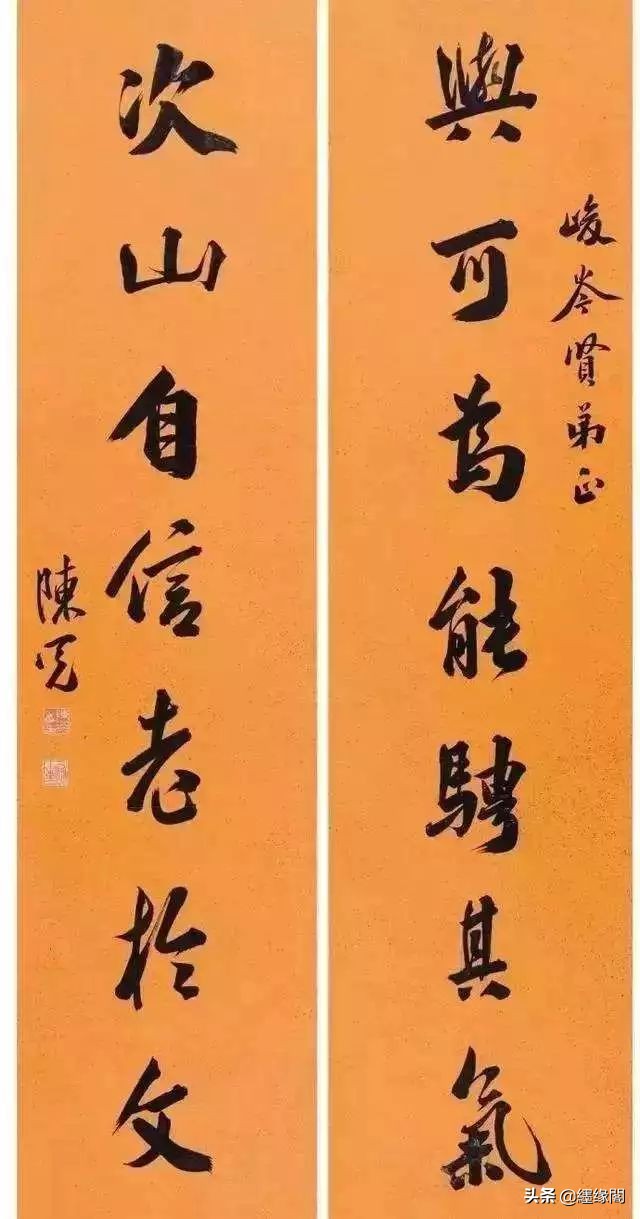 峻岑賢弟正
與可為能騁其氣
次山自信老於文
陳冕
头条 @纆缘閣